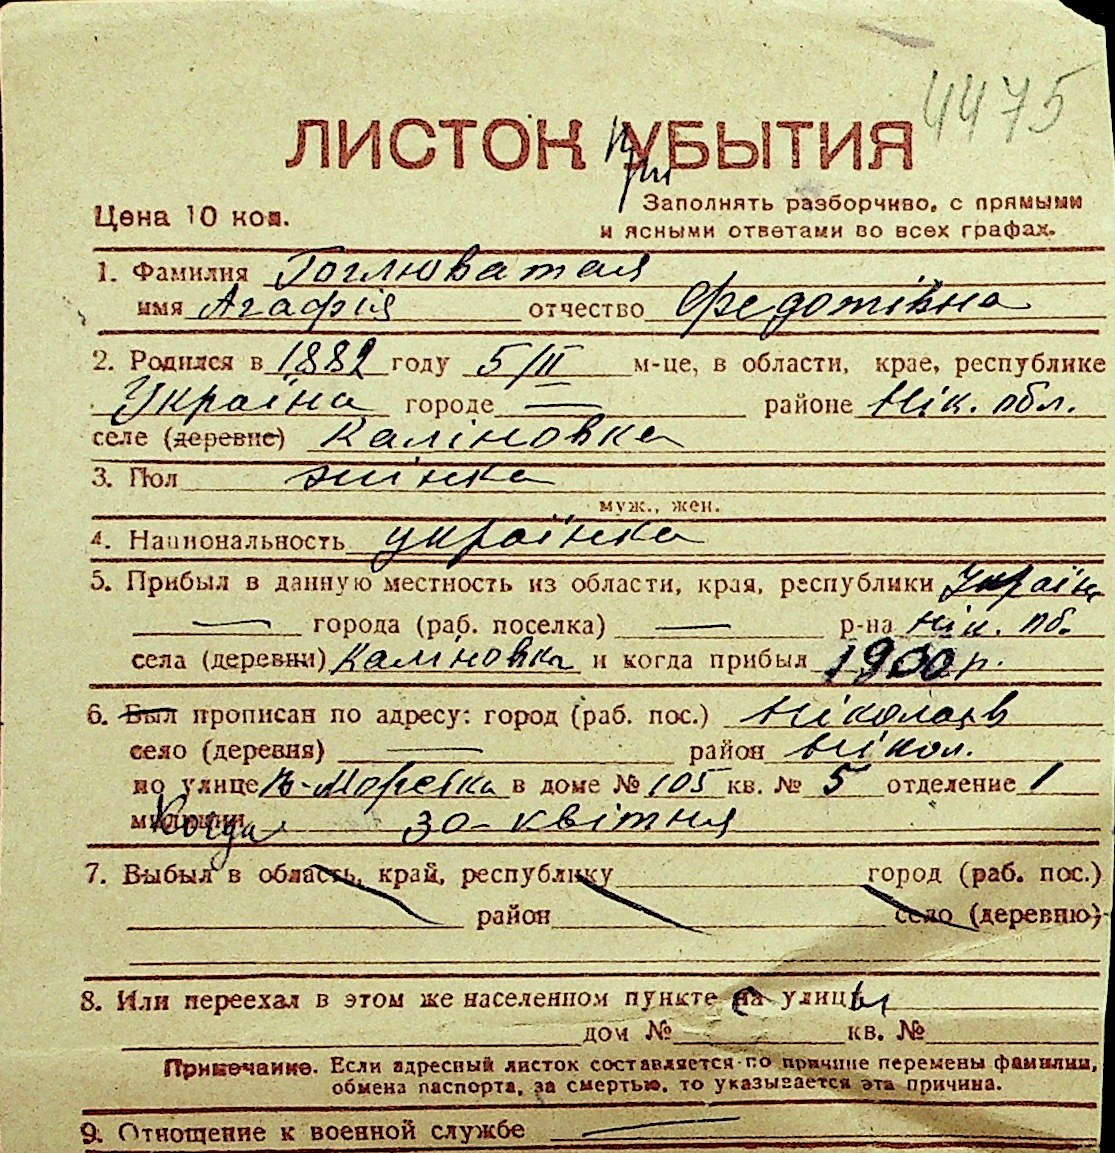 4475
ЛИСТОК УБЫТИЯ
Цена 10 коп.
Заполнять разборчиво, с прямыми
и ясными ответами во всех графах.
1. Фамилия Гоглюватая
имя Агафія отчество Федотівна
2. Родился в 1882 году 5/II м-це, в области, крае, республике
Україна городе — районе Нік. обл.
селе (деревне) Каліновка
3. Пол жінка
муж., жен.
4. Национальность українка
5. Прибыл в данную местность из области, края, республики Україн
— города (раб. поселка) — р-на Нік. об.
села (деревни) Каліновка и когда прибыл 1900 р.
6. Был прописан по адресу: город (раб. пос.) Ніколаєв
село (деревня) — район Нікол.
по улице в доме № 105 кв. № 5 отделение 1
милиции Когда 30 - квітня
7. Выбыл в область, край, республику город (раб. пос.)
район село (деревню)
8. Или переехал в этом же населенном пункте с улицы
дом № кв. №
Примечание. Если адресный листок составляется по причине перемены фамилии,
обмена паспорта, за смертью, то указывается эта причина.
9. Отношение к военной службе —